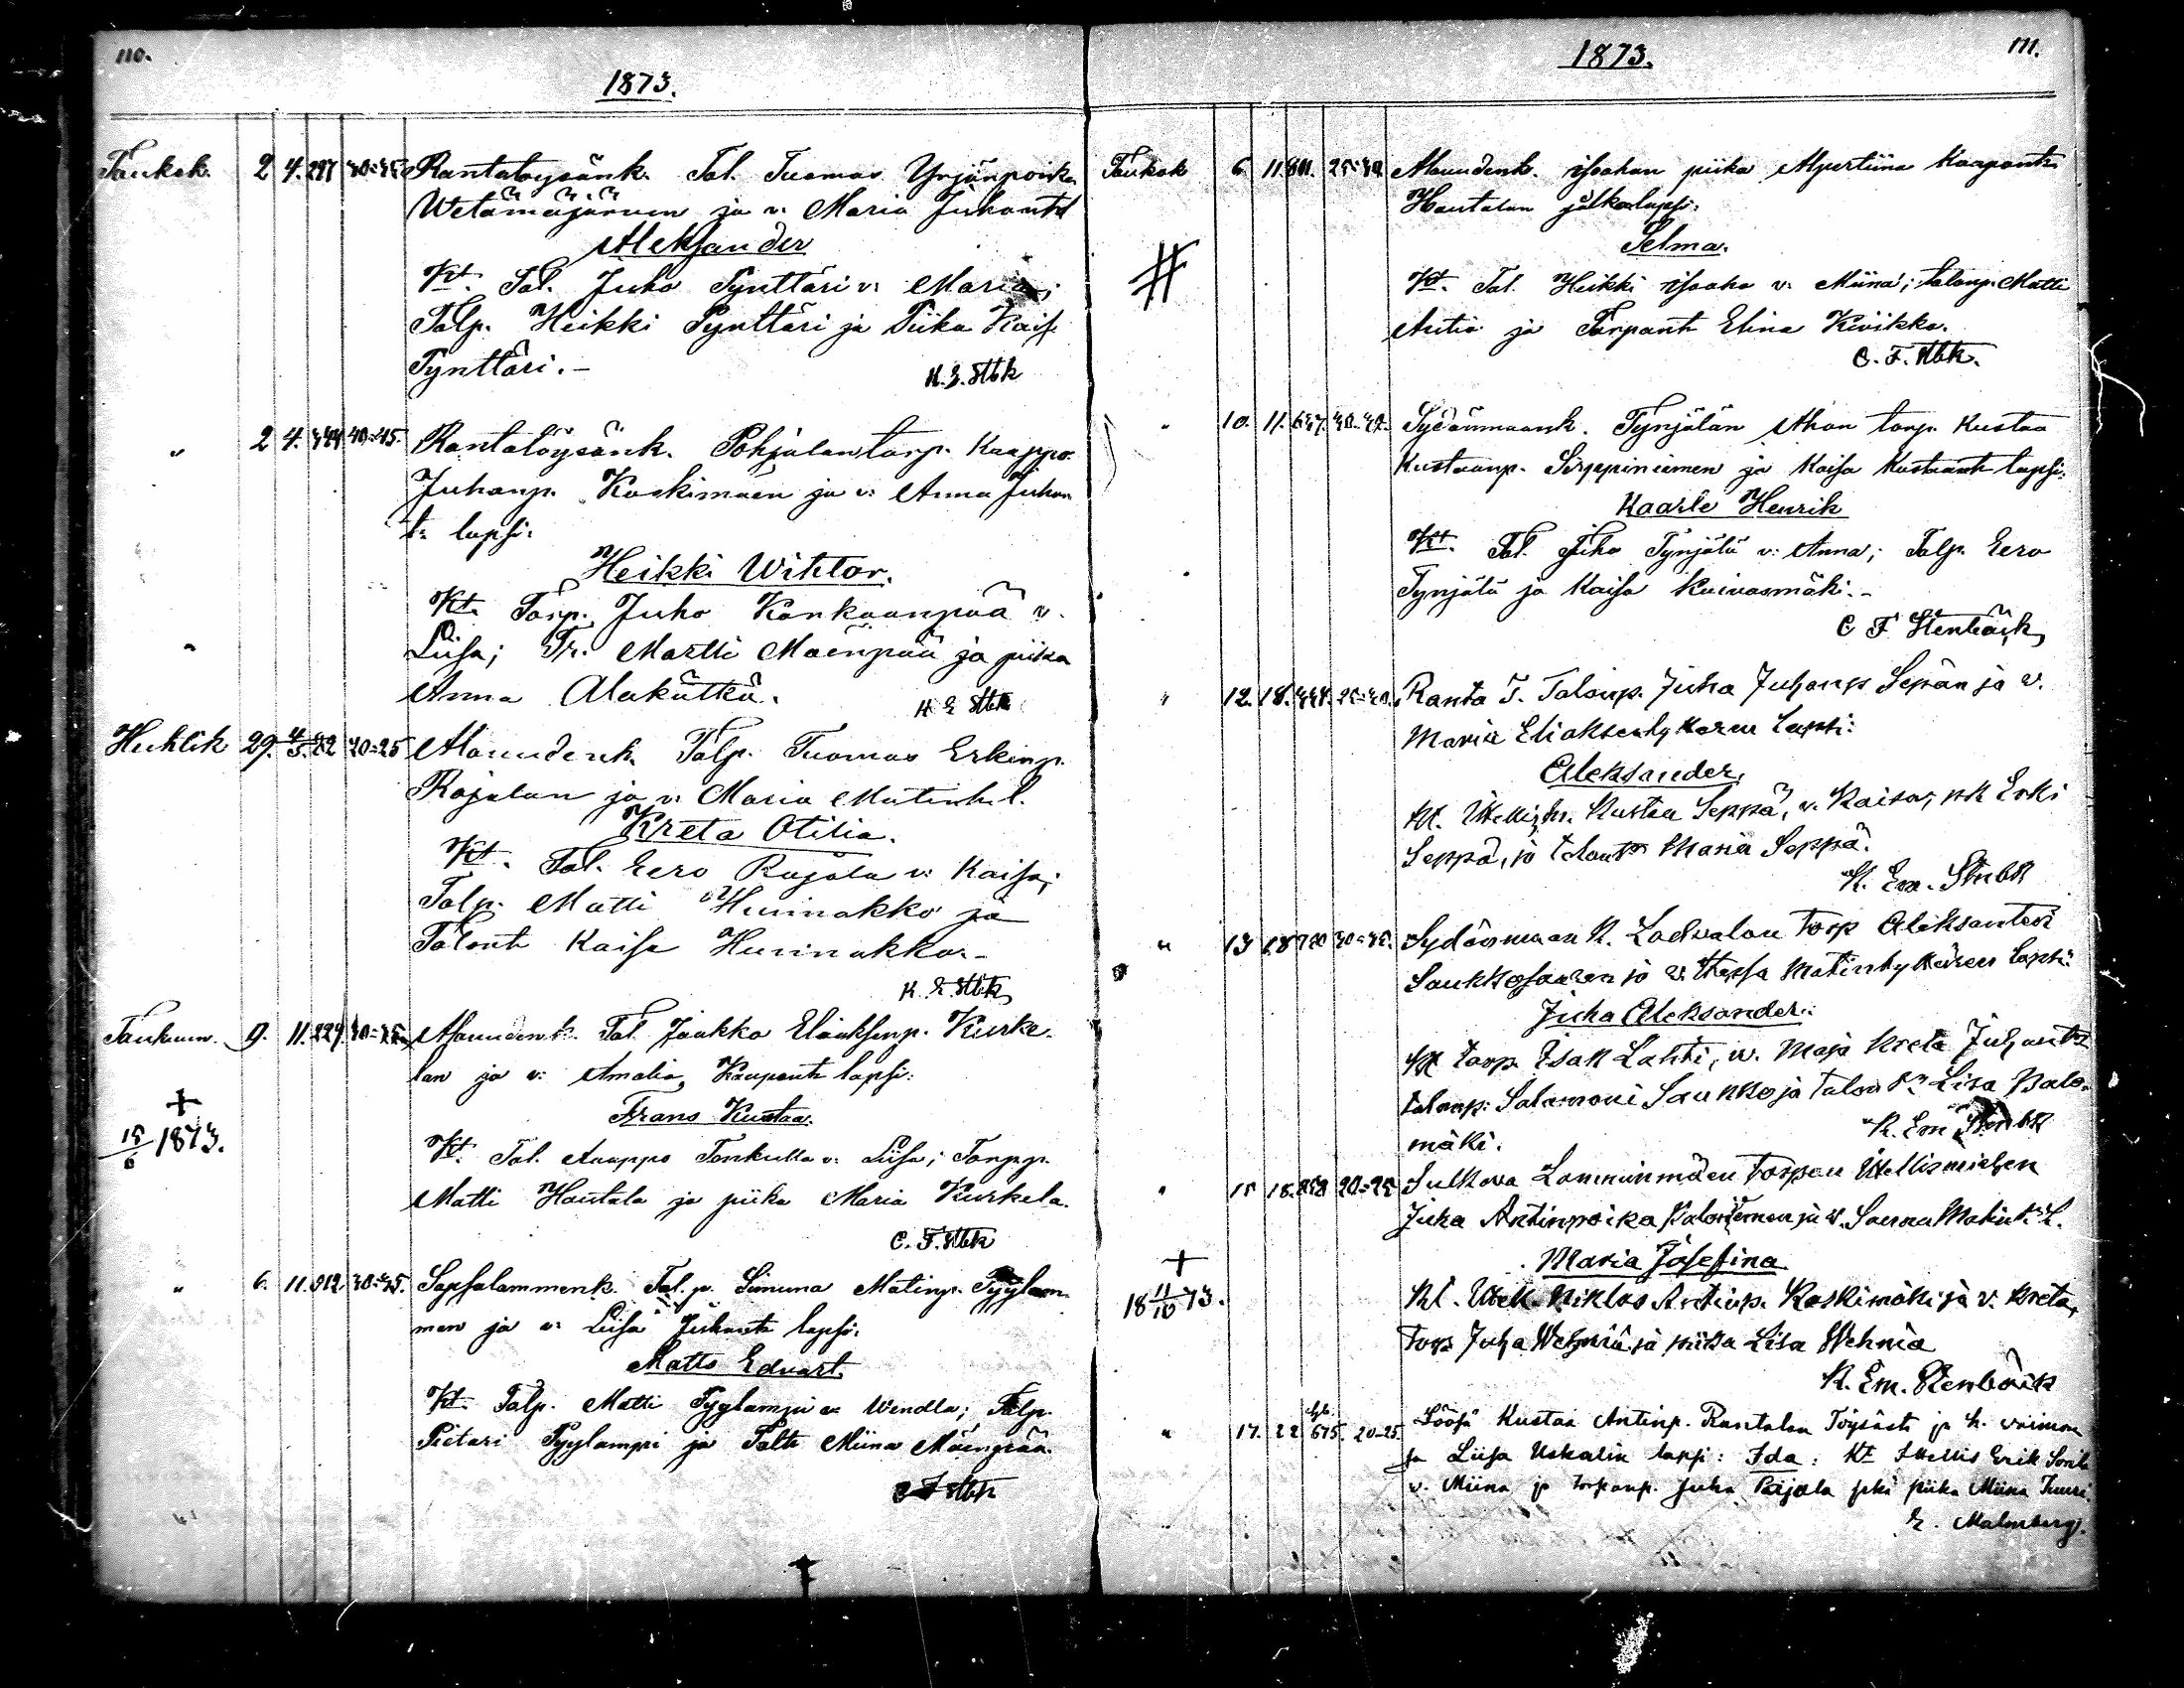 110.
1873.
Toukok. 2 4. 297 40=45 Rantatöysänk. Tal. Tuomas Yrjönpoika
Wetämäjärven ja v: Maria Juhant
Aleksander
Kt. Tal. Juho Tynttäri v: Maria;
Talp. Heikki Tynttäri ja Piika Kaisa
Tynttäri.-
K. E. Stbk
" 2 4. 444 40=45. Rantatöysänk. Pohjalan torp. Kaappo
Juhanp. Koskimäen ja v: Anna Juhan
t: lapsi:
Heikki Wihtor.
Kt. Torp. Juho Kankaanpää v.
Liisa; Tr. Martti Mäenpää ja piika
Anna Alakätkä.
K E Stbk
Huhtik 29. 4/5. 82 20=25 Alauudenk. Talp. Tuomas Erkinp.
Rajalan ja v: Maria Matint l.
Kreta Otilia.
Kt. Tal. Eero Rajala v: Kaisa;
Talp. Matti Hunnakko ja
Talont Kaisa Hunnakko.-
K. E. Stbk
Toukuun. 9. 11. 224 40=45 Alauudenk. Tal. Jaakko Eliaksenp. Kurke-
lan ja v: Amalia Kaapont lapsi:
Frans Kustaa.
+
15/6 1873.
Kt. Tal. Kaappo Tonkulla v: Liisa; Torpp.
Matti Hautala ja piika Maria Kurkela.
C. F. Stbk
" 6. 11. 912 40=45. Sapsalammenk. Tal.p. Simuna Matinp. Pyylam-
men ja v: Liisa Juhant lapsi:
Matts Edvart.
Kt. Talp. Matti Pyylampi v: Wendla; Talp.
Pietari Pyylampi ja Talt: Miina Mäenpää.
C F Stbk
1873.
111.
Toukok 6. 11. 801. 25=30. Alauudenk. Isoahon piika Alpertiina Kaapont:
Hautalan jälkalapsi:
Selma.
#
Kt. Tal. Heikki Isoaho v: Miina; talonp. Matti
Antia ja Torpant Elina Kivikko.
C. F. Stbk.
" 10. 11. 647. 40-45. Sydänmaank. Tynjälän Ahon torp. Kustaa
Kustaanp. Serppiniemen ja Kaisa Kustaant lapsi:
Kaarle Henrik
Kt. Tal. Juho Tynjälä v: Anna; Talp. Eero
Tynjälä ja Kaisa Kuivasmäki.-
C F Stenbäck
" 12. 18. 444. 25=30. Ranta T. Talonp. Juha Juhanp Sepän ja v.
Maria Eliaksent lapsi:
Aleksander.
Kt. Itellism. Kustaa Seppä, v. Kaisa, pk Erki
Seppä, ja talont: Maria Seppä.
K. Em. Stnbk
" 13 18 720 30=35. Sydänmaan K. Ladvalan torp Aleksanteri
Saukkosaaren ja v. Matintyttären lapsi:
Juha Aleksander.
Kt torp Isak Lahti, v. Maja Kreta Juhant
talonp: Salamoni Saukko ja talont: Lisa Palo-
mäki.
K. Em Stenbk
" 15 18. 20=25 Sulkava Lamminmäen torpan Itellismiehen
Juha Antinpoika ja v. Sanna Matint: L.
Maria Josefina
+
18 11/10 73.
Kt. Itell. Niklas Antinp. Koskimäki ja v. Kreta,
torp. Juha Wehniä ja piika Lisa Wehniä
K. Em. Stenbäck
" 17. 22 675. 20-25. Löösi Kustaa Antinp. Rantalan Töysästä ja h. vaimon
sa Liisa Uskalin lapsi: Ida: Kt Itellis Erik
v. Miina ja torpanp. Juha Paijala sekä piika Miina Kuusi.
E. Malmberg.